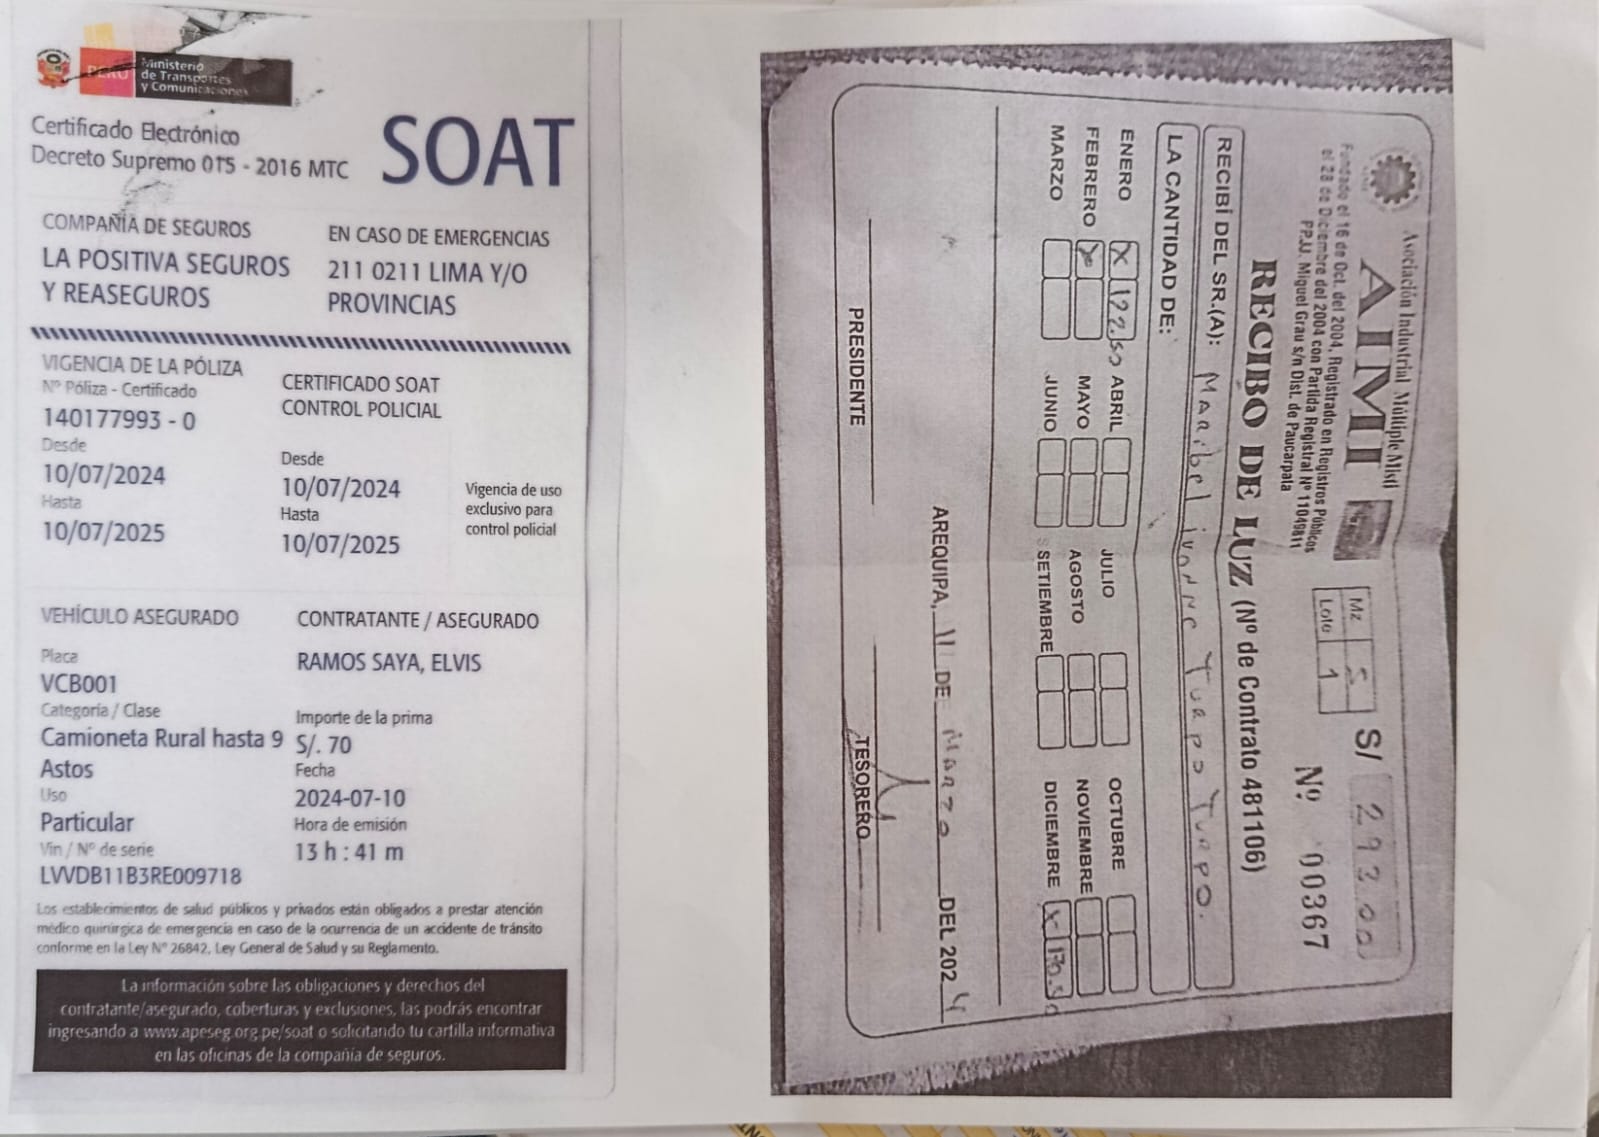 PERÚ
Ministerio
de Transportes
y Comunicaciones
Certificado Electrónico
Decreto Supremo 015 - 2016 MTC
SOAT
COMPAÑÍA DE SEGUROS
LA POSITIVA SEGUROS
Y REASEGUROS
EN CASO DE EMERGENCIAS
211 0211 LIMA Y/O
PROVINCIAS
VIGENCIA DE LA PÓLIZA
Nº Póliza - Certificado
140177993 - 0
Desde
10/07/2024
Hasta
10/07/2025
CERTIFICADO SOAT
CONTROL POLICIAL
Desde
10/07/2024
Hasta
10/07/2025
Vigencia de uso
exclusivo para
control policial
VEHÍCULO ASEGURADO
Placa
VCB001
Categoría / Clase
Camioneta Rural hasta 9
Astos
Uso
Particular
Vin / Nº de serie
LVVDB11B3RE009718
CONTRATANTE / ASEGURADO
RAMOS SAYA, ELVIS
Importe de la prima
S/. 70
Fecha
2024-07-10
Hora de emisión
13 h : 41 m
Los establecimientos de salud públicos y privados están obligados a prestar atención
médico quirúrgica de emergencia en caso de la ocurrencia de un accidente de tránsito
conforme en la Ley Nº 26842, Ley General de Salud y su Reglamento.
La información sobre las obligaciones y derechos del
contratante/asegurado, coberturas y exclusiones, las podrás encontrar
ingresando a www.apeseg.org.pe/soat o solicitando tu cartilla informativa
en las oficinas de la compañía de seguros.
Asociación Industrial Múltiple Misti
AIMI
Fundado el 16 de Oct. del 2004, Registrado en Registros Públicos
el 28 de Diciembre del 2004 con Partida Registral Nº 11049811
PP.JJ. Miguel Grau s/n Dist. de Paucarpata
Mz
Lote 1
S/ 293.00
Nº 00367
RECIBO DE LUZ (Nº de Contrato 481106)
RECIBÍ DEL SR.(A): Maribel ivonne Turpo Turpo.
LA CANTIDAD DE:
ENERO X 122.50 ABRIL JULIO OCTUBRE
FEBRERO X MAYO AGOSTO NOVIEMBRE
MARZO JUNIO SETIEMBRE DICIEMBRE X 170.50
AREQUIPA, 11 DE Marzo DEL 2024
PRESIDENTE TESORERO